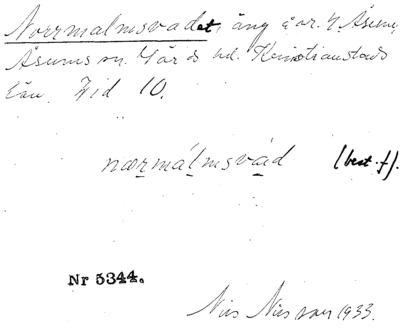 Norrmalmsvadet, äng å nr. 4 Åsum,
Åsums sn. Gärds hd. Kristianstads
län. Zid 10.
nærmálmsvád (best. f.).
Nr 5344.
Nils Nilsson 1933.